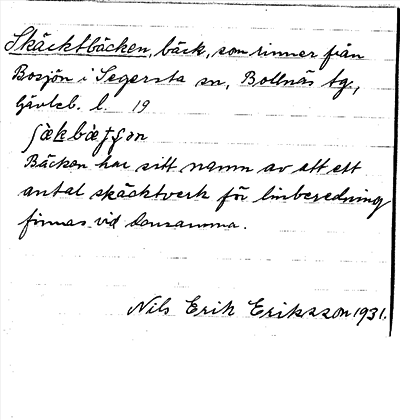 Skäcktbäcken, bäck, som rinner från
Bosjön i Segersta sn, Bollnäs tg.,
Gävleb. l. 19
Bäcken har sitt namn av att ett
antal skäcktverk för linberedning
finnas vid densamma.
Nils Erik Eriksson 1931.